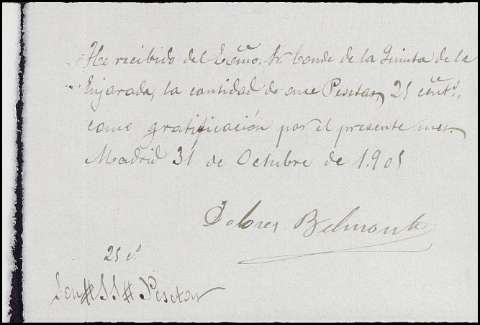 He recibido del Excmo. Sr Conde de la Quinta de la
Enjarada, la cantidad de once Pesetas, 25 cents.
como gratificación por el presente mes.
Madrid 31 de Octubre de 1.901
Dolores Belmonte
25 cs
Son #11# Pesetas